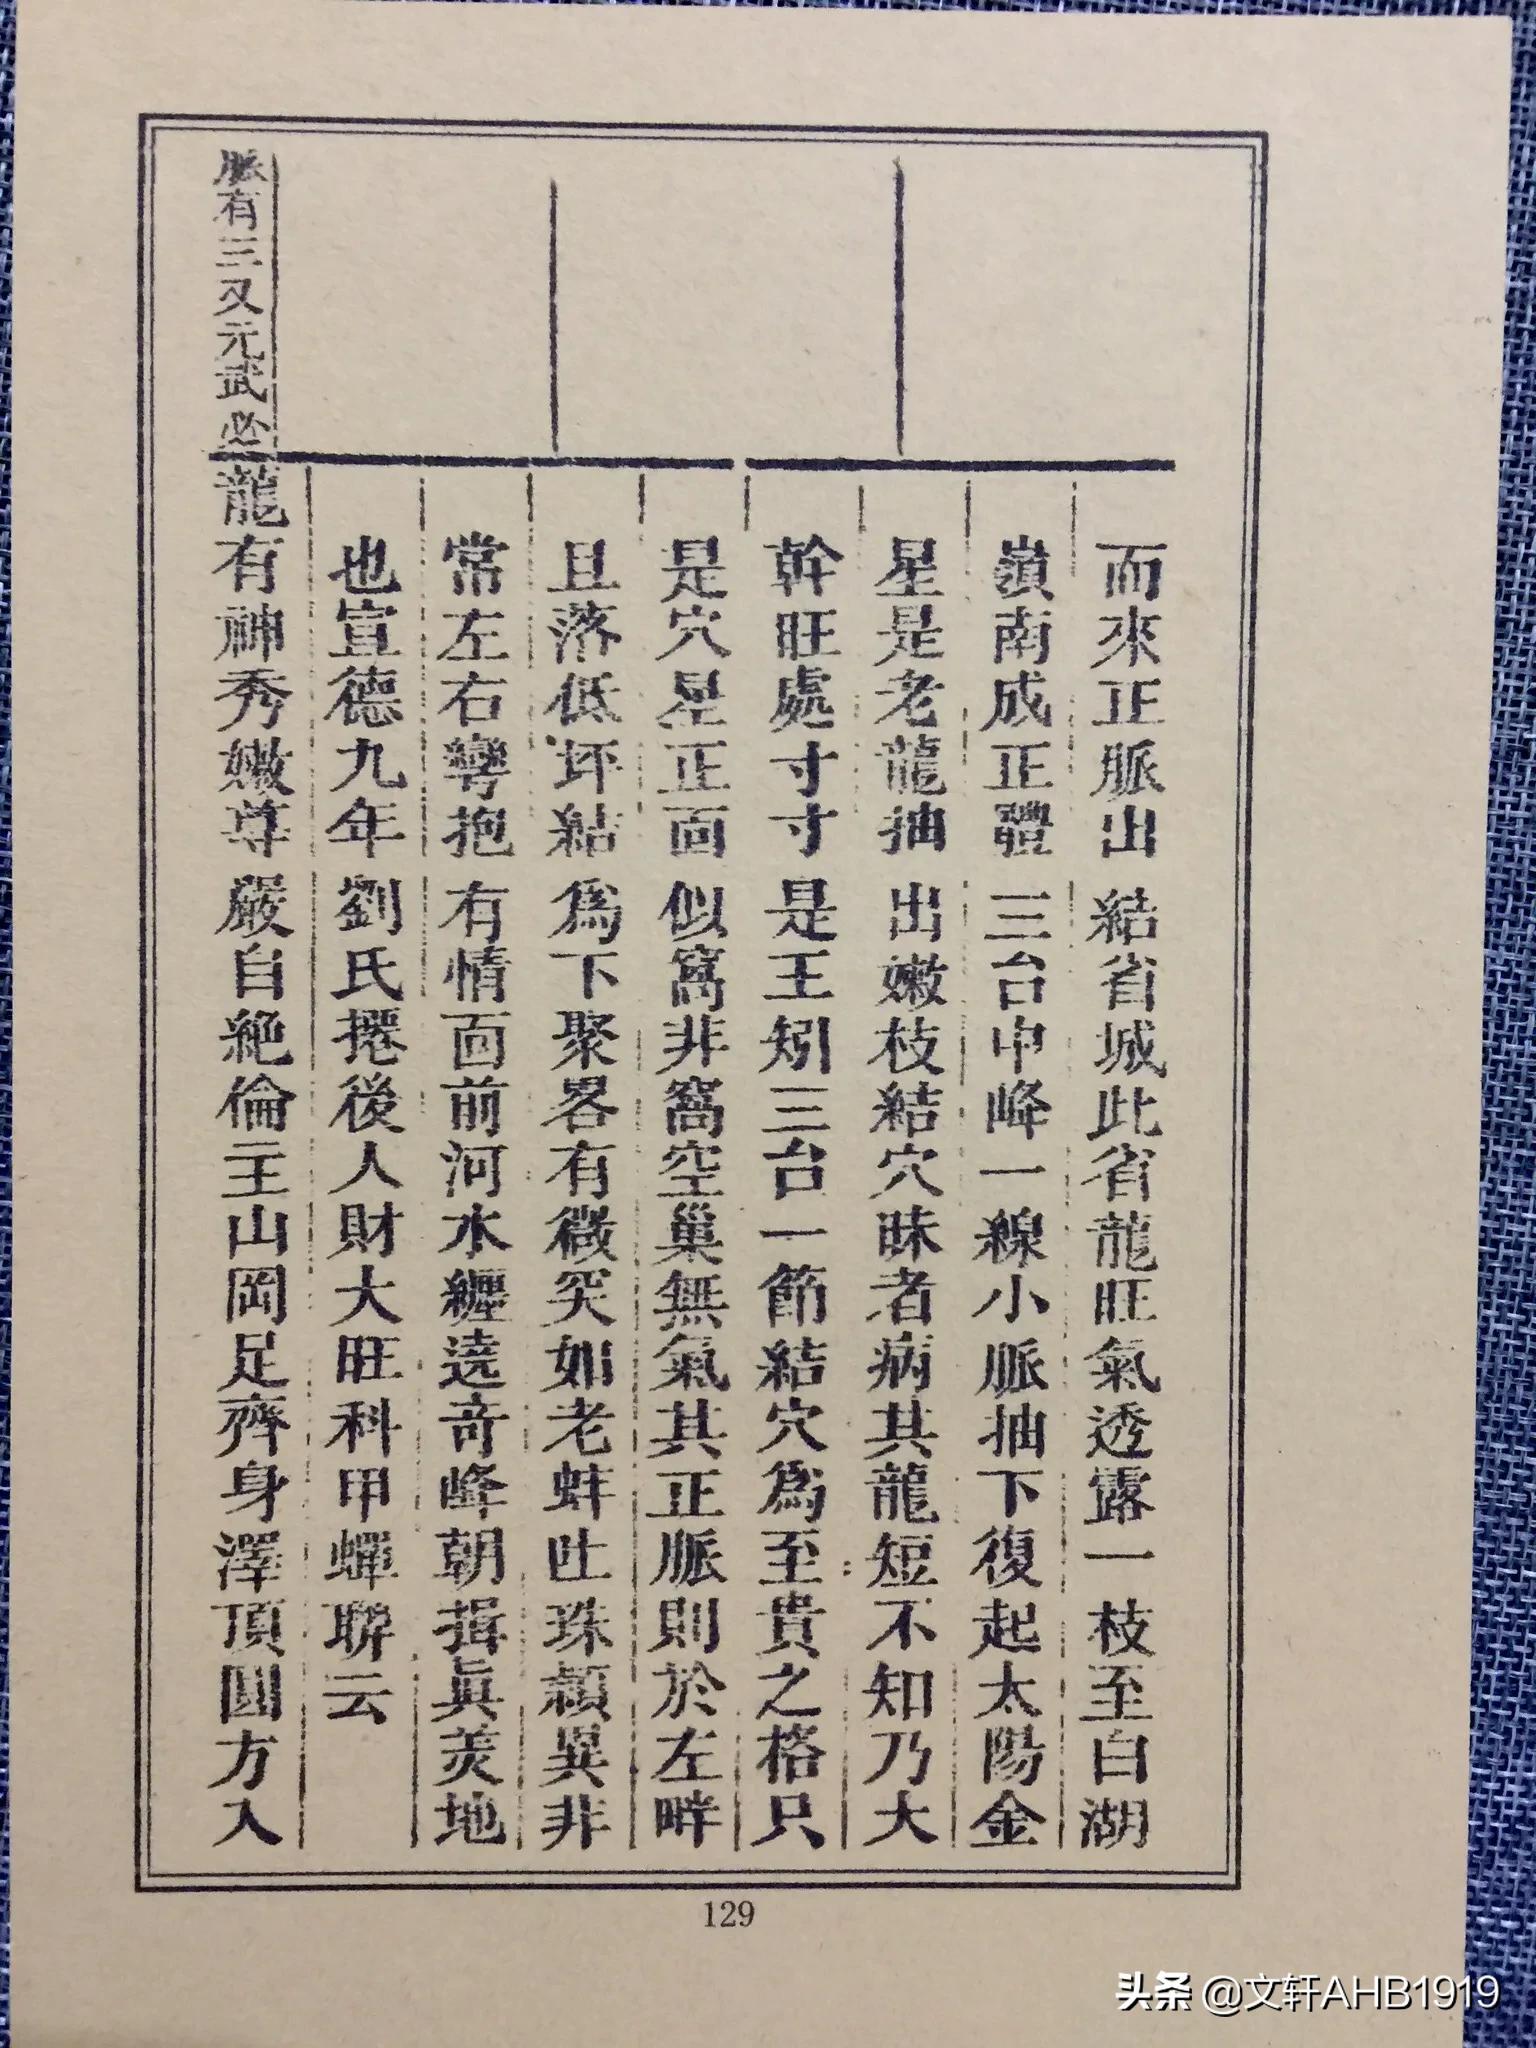 而來正脈出結省城此省龍旺氣透露一枝至白湖
嶺南成正體三台中峰一線小脈抽下復起太陽金
星是老龍抽出嫩枝結穴昧者病其龍短不知乃大
幹旺處寸寸是王矧三台一節結穴為至貴之格只
是穴星正面似窩非窩空巢無氣其正脈則於左畔
且落低坪結為下聚畧有微突如老蚌吐珠穎異非
常左右彎抱有情面前河水纏遶奇峰朝揖眞羙地
也宣德九年劉氏遷後人財大旺科甲蟬聯云
龍有神秀嫩尊嚴自絶倫主山岡足齊身澤頂圓方入
脈有三又元武必
129
头条 @文轩AHB1919